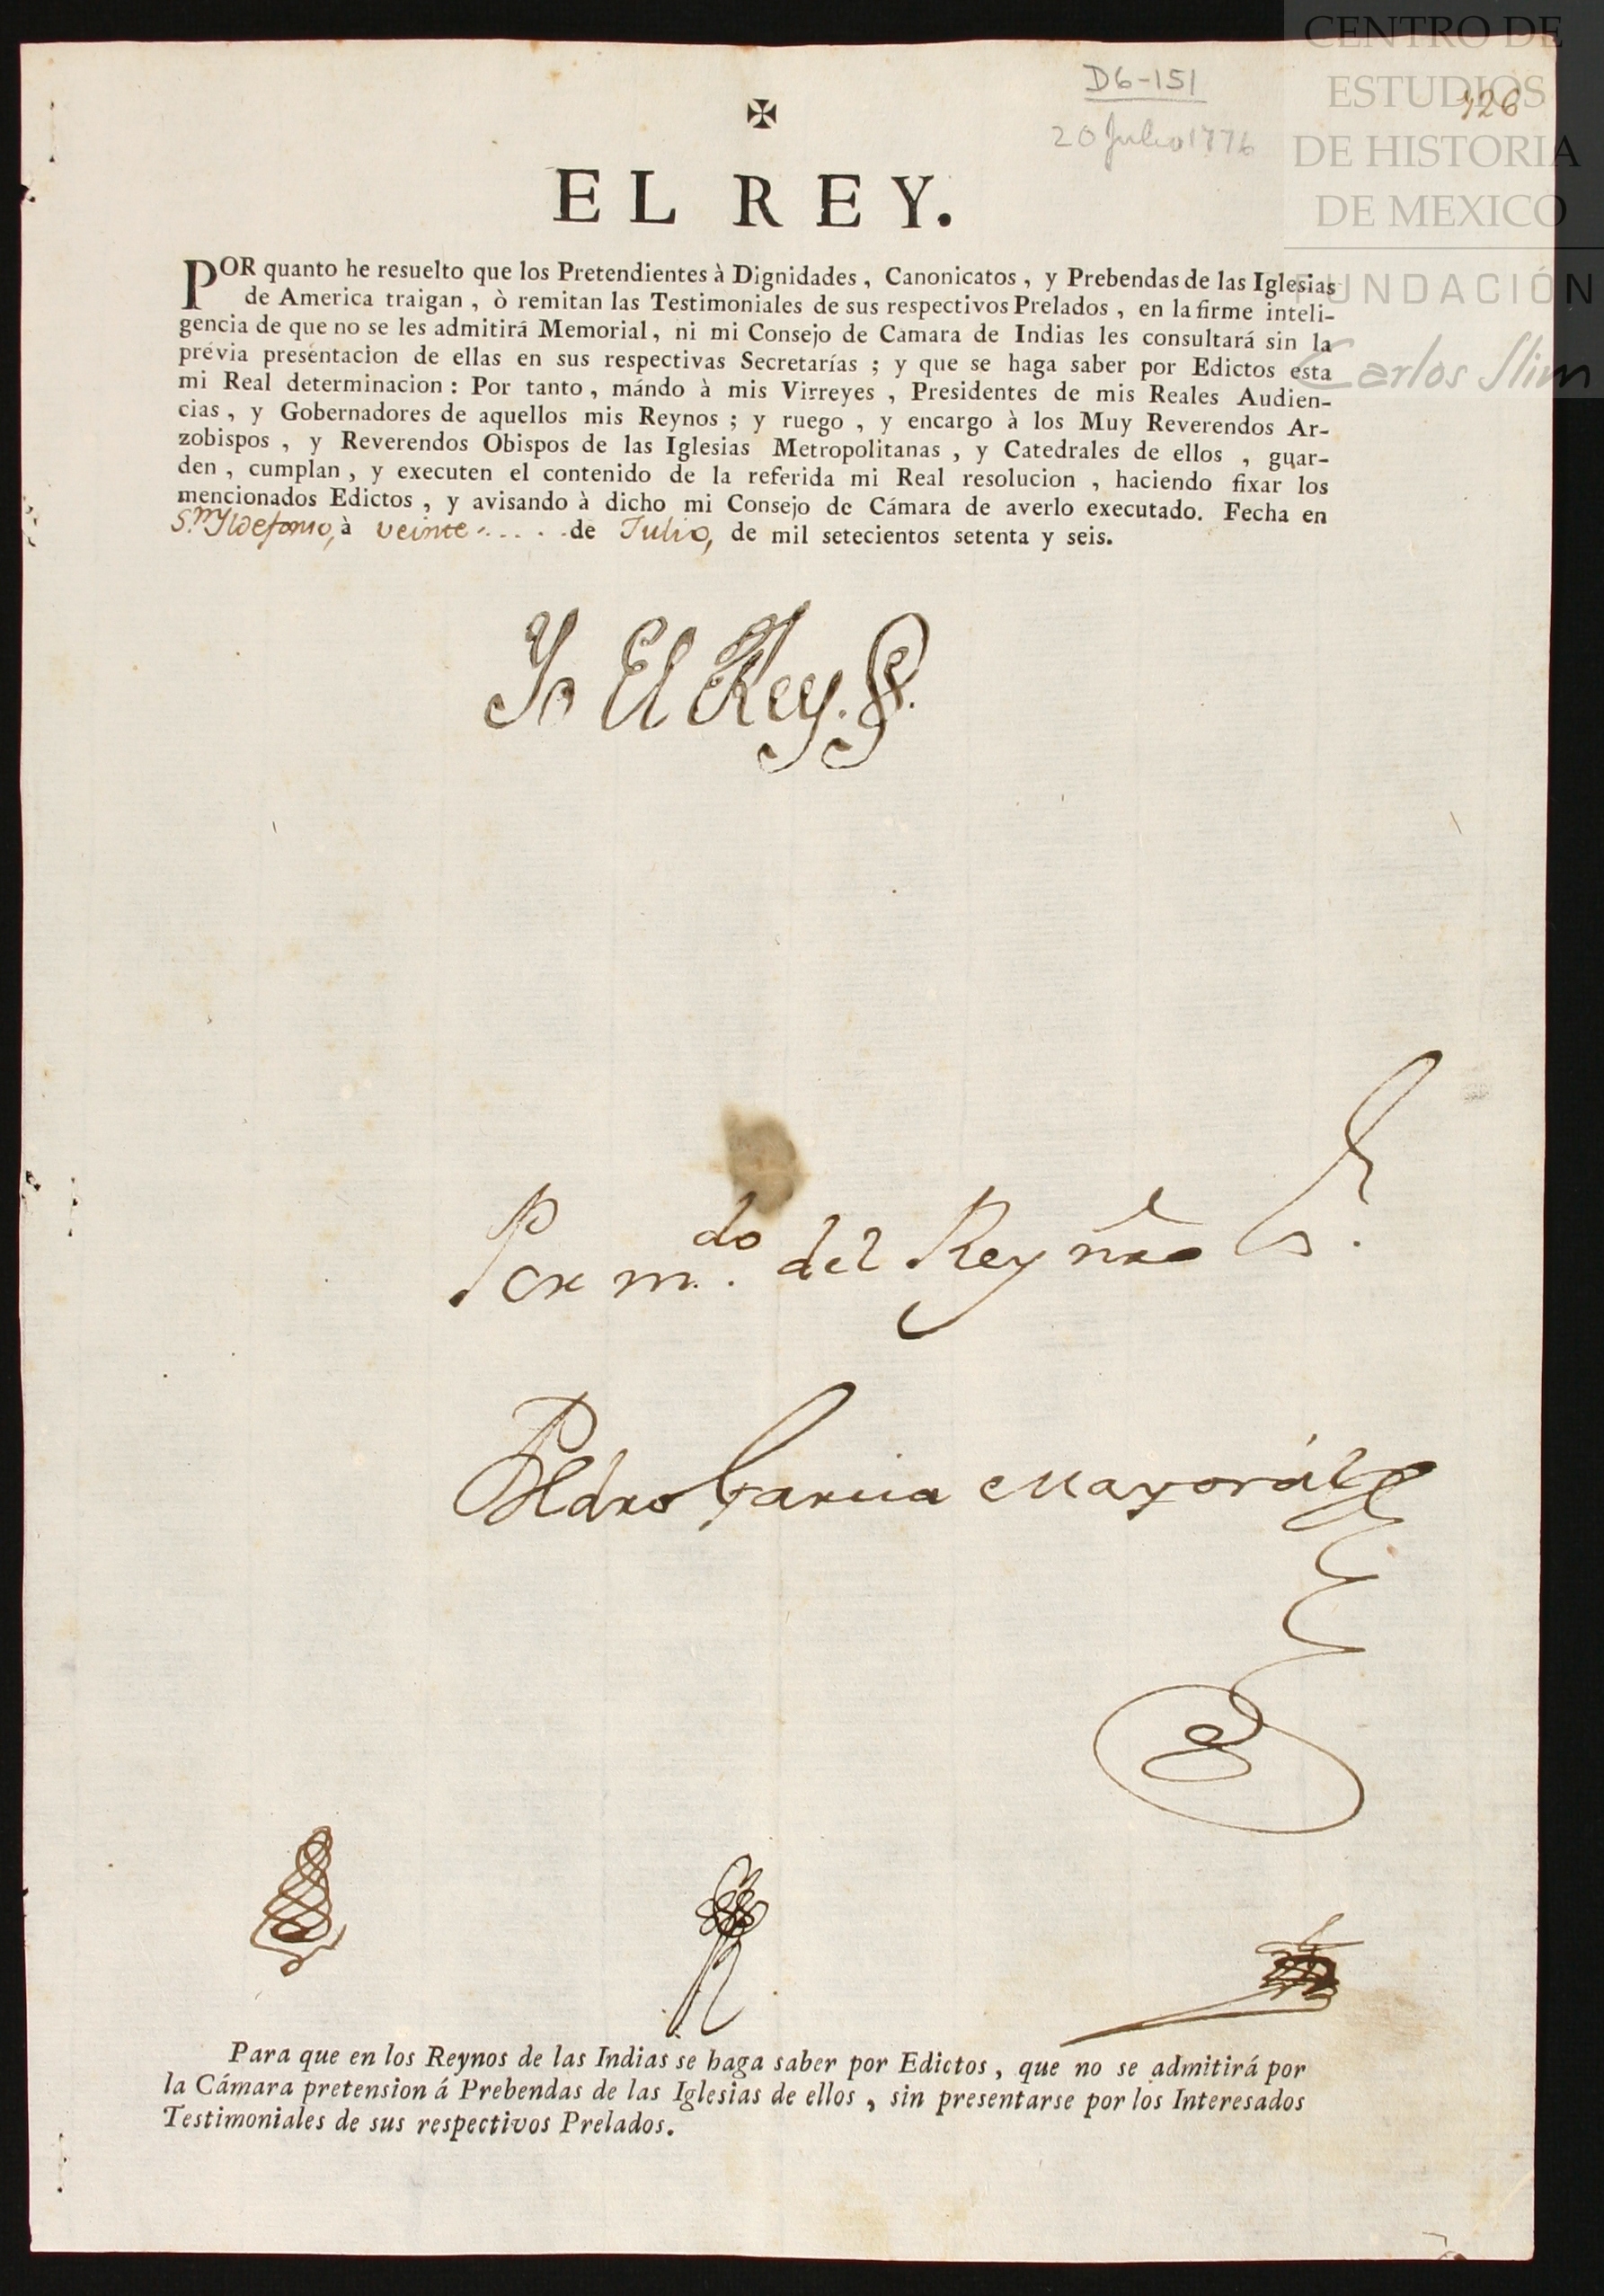 D6-151
20 Julio 1776
126
CENTRO DE
ESTUDIOS
DE HISTORIA
DE MEXICO
FUNDACIÓN
Carlos Slim
✠
EL REY.
POR quanto he resuelto que los Pretendientes à Dignidades, Canonicatos, y Prebendas de las Iglesias
de America traigan, ò remitan las Testimoniales de sus respectivos Prelados, en la firme inteli-
gencia de que no se les admitirá Memorial, ni mi Consejo de Camara de Indias les consultará sin la
prévia presentacion de ellas en sus respectivas Secretarías; y que se haga saber por Edictos esta
mi Real determinacion: Por tanto, mándo à mis Virreyes, Presidentes de mis Reales Audien-
cias, y Gobernadores de aquellos mis Reynos; y ruego, y encargo à los Muy Reverendos Ar-
zobispos, y Reverendos Obispos de las Iglesias Metropolitanas, y Catedrales de ellos, guar-
den, cumplan, y executen el contenido de la referida mi Real resolucion, haciendo fixar los
mencionados Edictos, y avisando à dicho mi Consejo de Cámara de averlo executado. Fecha en
Sn Yldefonso, à veinte ..... de Julio, de mil setecientos setenta y seis.
Yo El Rey.
Por mdo. del Rey nro Sr.
Pedro Garcia Mayorál
Para que en los Reynos de las Indias se haga saber por Edictos, que no se admitirá por
la Cámara pretension á Prebendas de las Iglesias de ellos, sin presentarse por los Interesados
Testimoniales de sus respectivos Prelados.